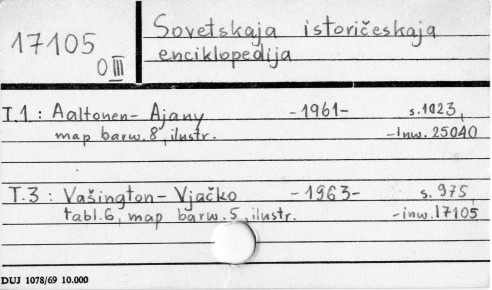 17105
O III
Sovetskaja istoričeskaja
enciklopedija
T.1.: Aaltonen - Ajany -1961- s.1023,
map barw. 8, ilustr. -inw. 25040
T.3 : Vašington - Vjačko -1963- s. 975,
tabl. 6, map barw. 5, ilustr. -inw. 17105
DUJ 1078/69 10.000